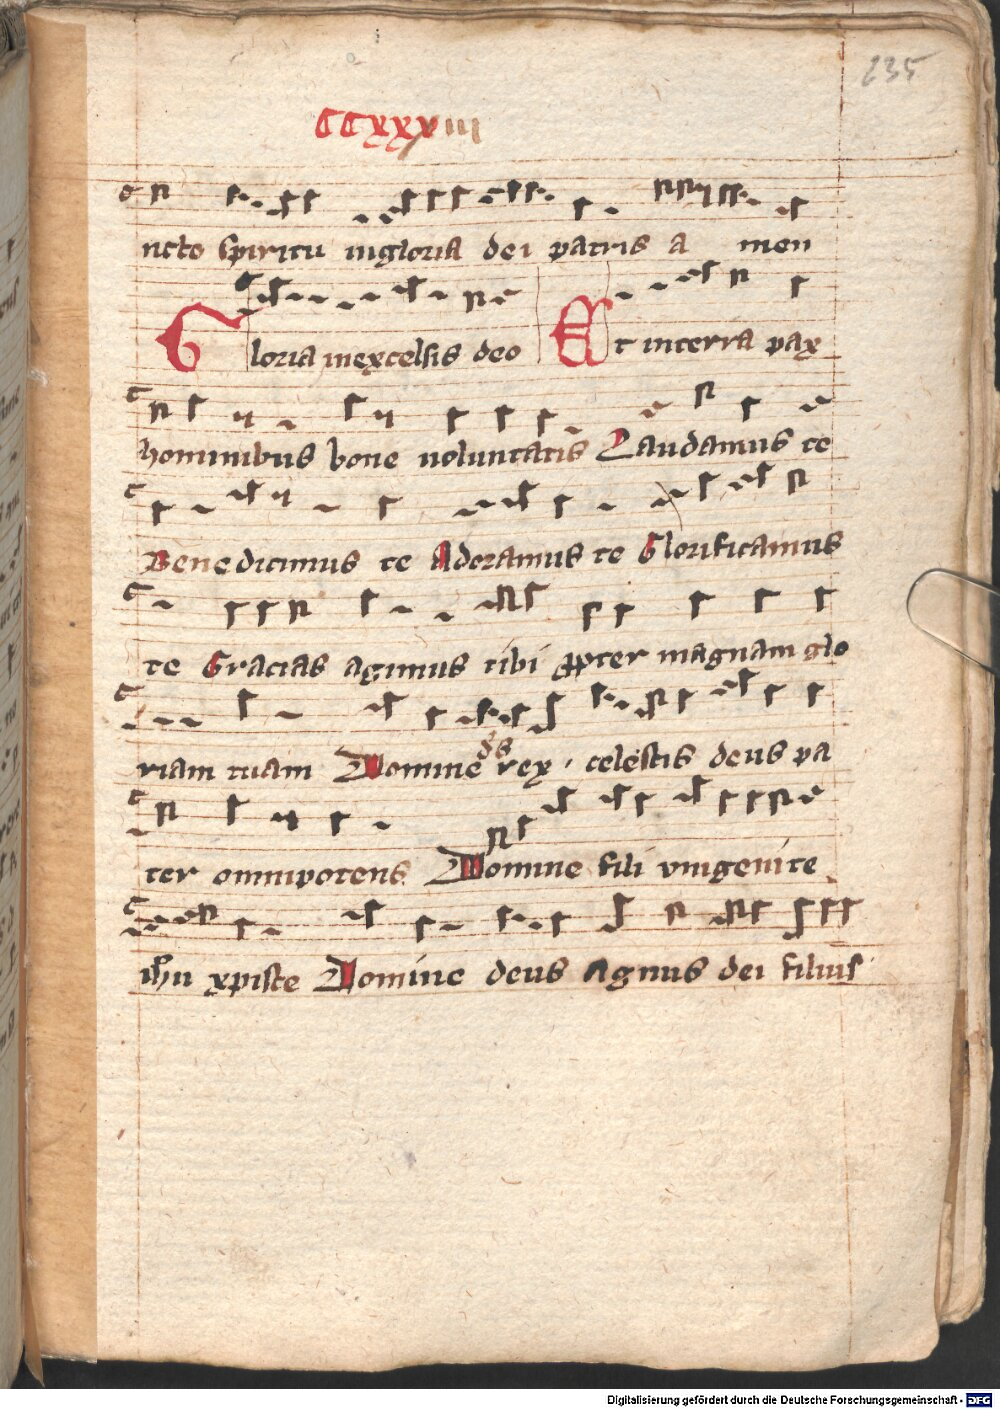 235
CCXXXIII
ncto Spiritu in gloria dei patris a men
Gloria in excelsis deo Et in terra pax
hominibus bone voluntatis Laudamus te
Benedicimus te Adoramus te Glorificamus
te Gracias agimus tibi ꝓpter magnam glo
riam tuam Domine ds rex celestis deus pa
ter omnipotens Domine fili vnigenite
ihu xpiste Domine deus Agnus dei filius
Digitalisierung gefördert durch die Deutsche Forschungsgemeinschaft - DFG